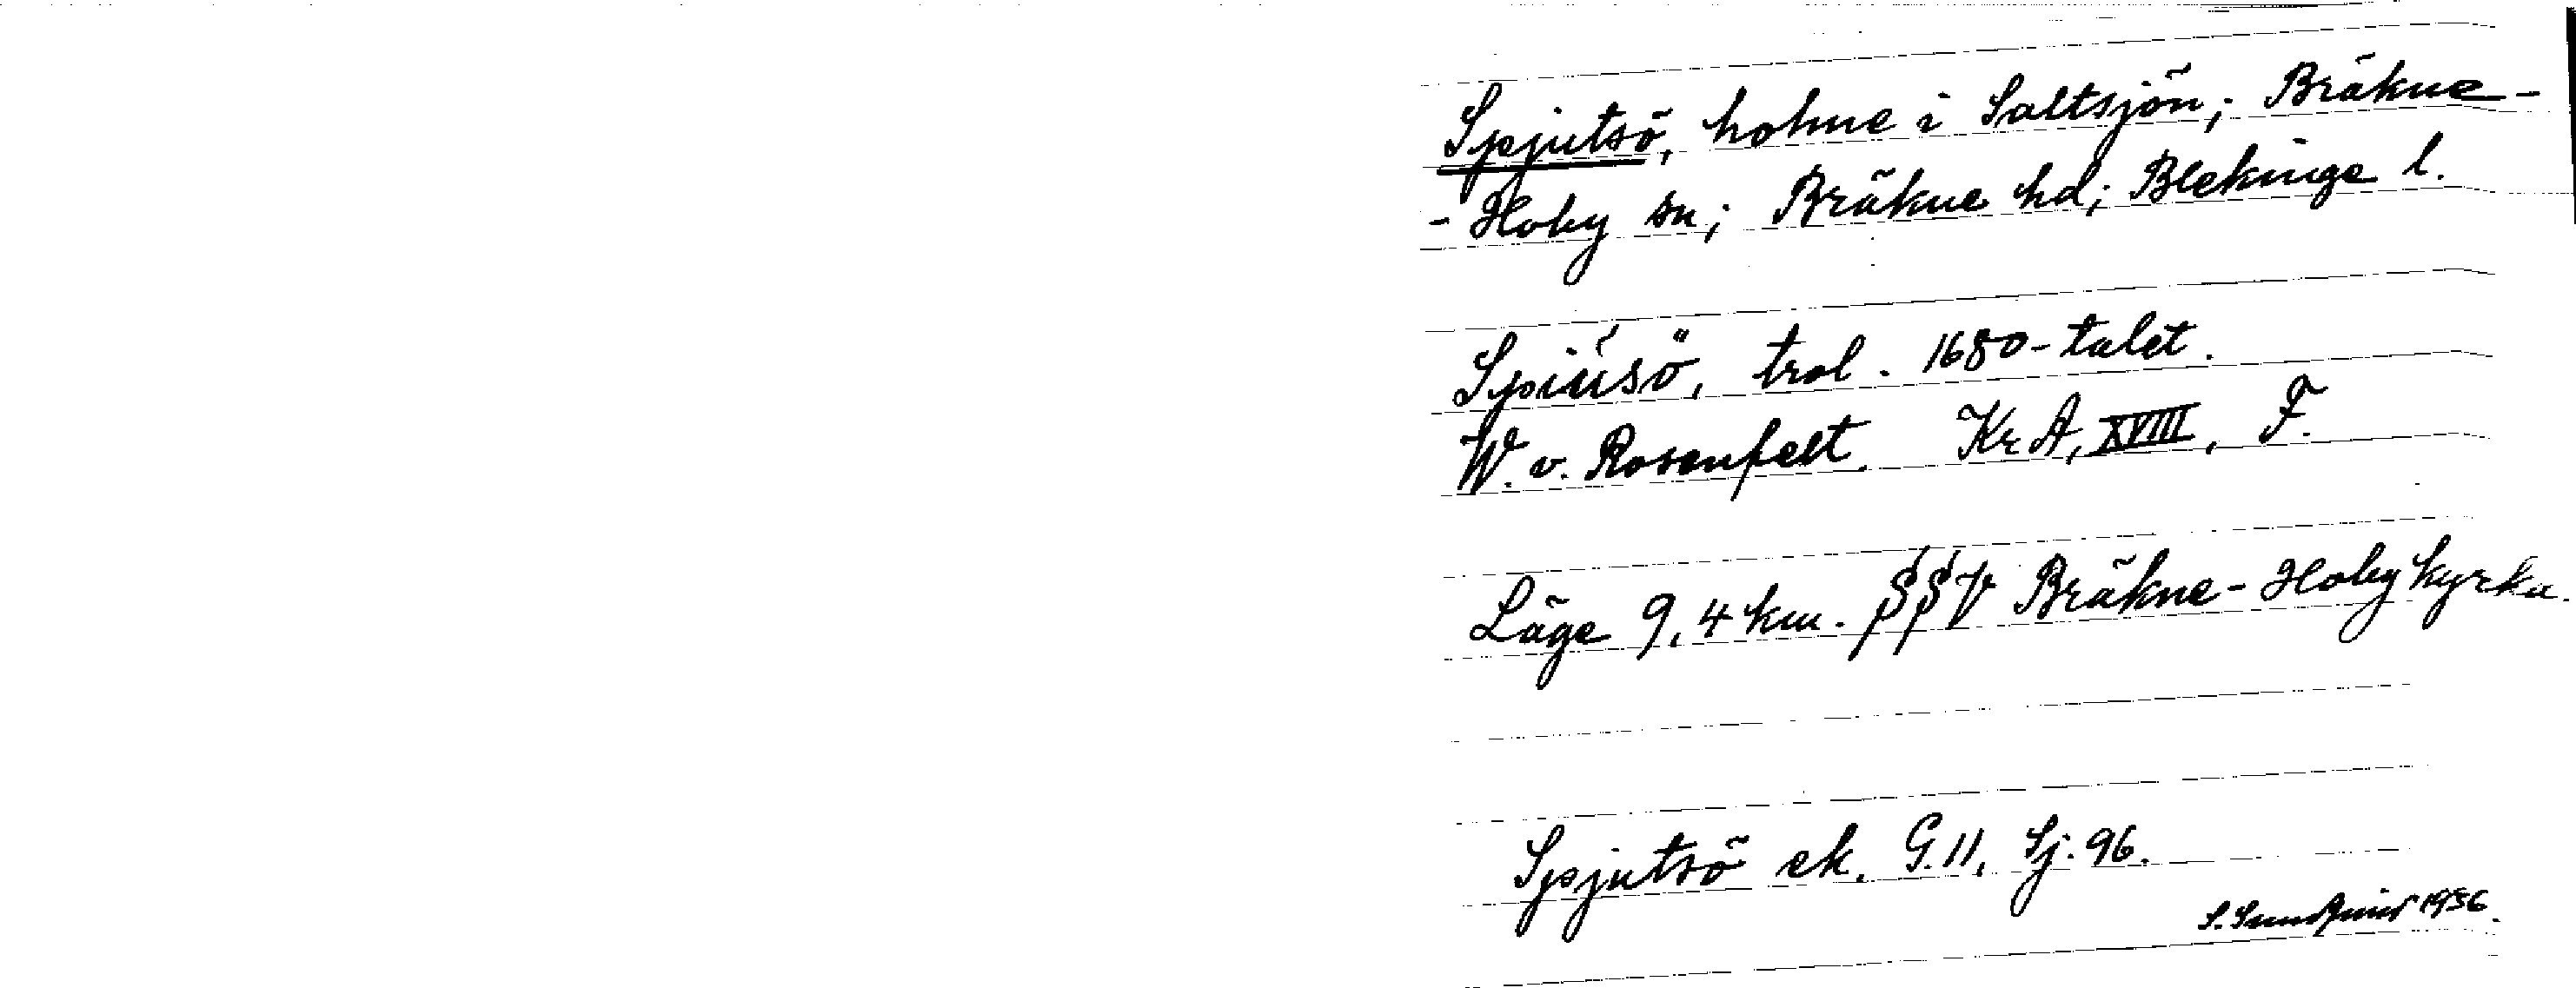 Spjutsö, holme i Saltsjön; Bräkne-
-Hoby sn; Bräkne hd; Blekinge l.
Spiúsö, trol. 1680-talet.
W. v. Rosenfelt. KrA, XVIII, F.
Läge 9,4 km. SSV Bräkne-Hoby kyrka.
Spjutsö ek. G.11, Sj. 96.
S. 1956.